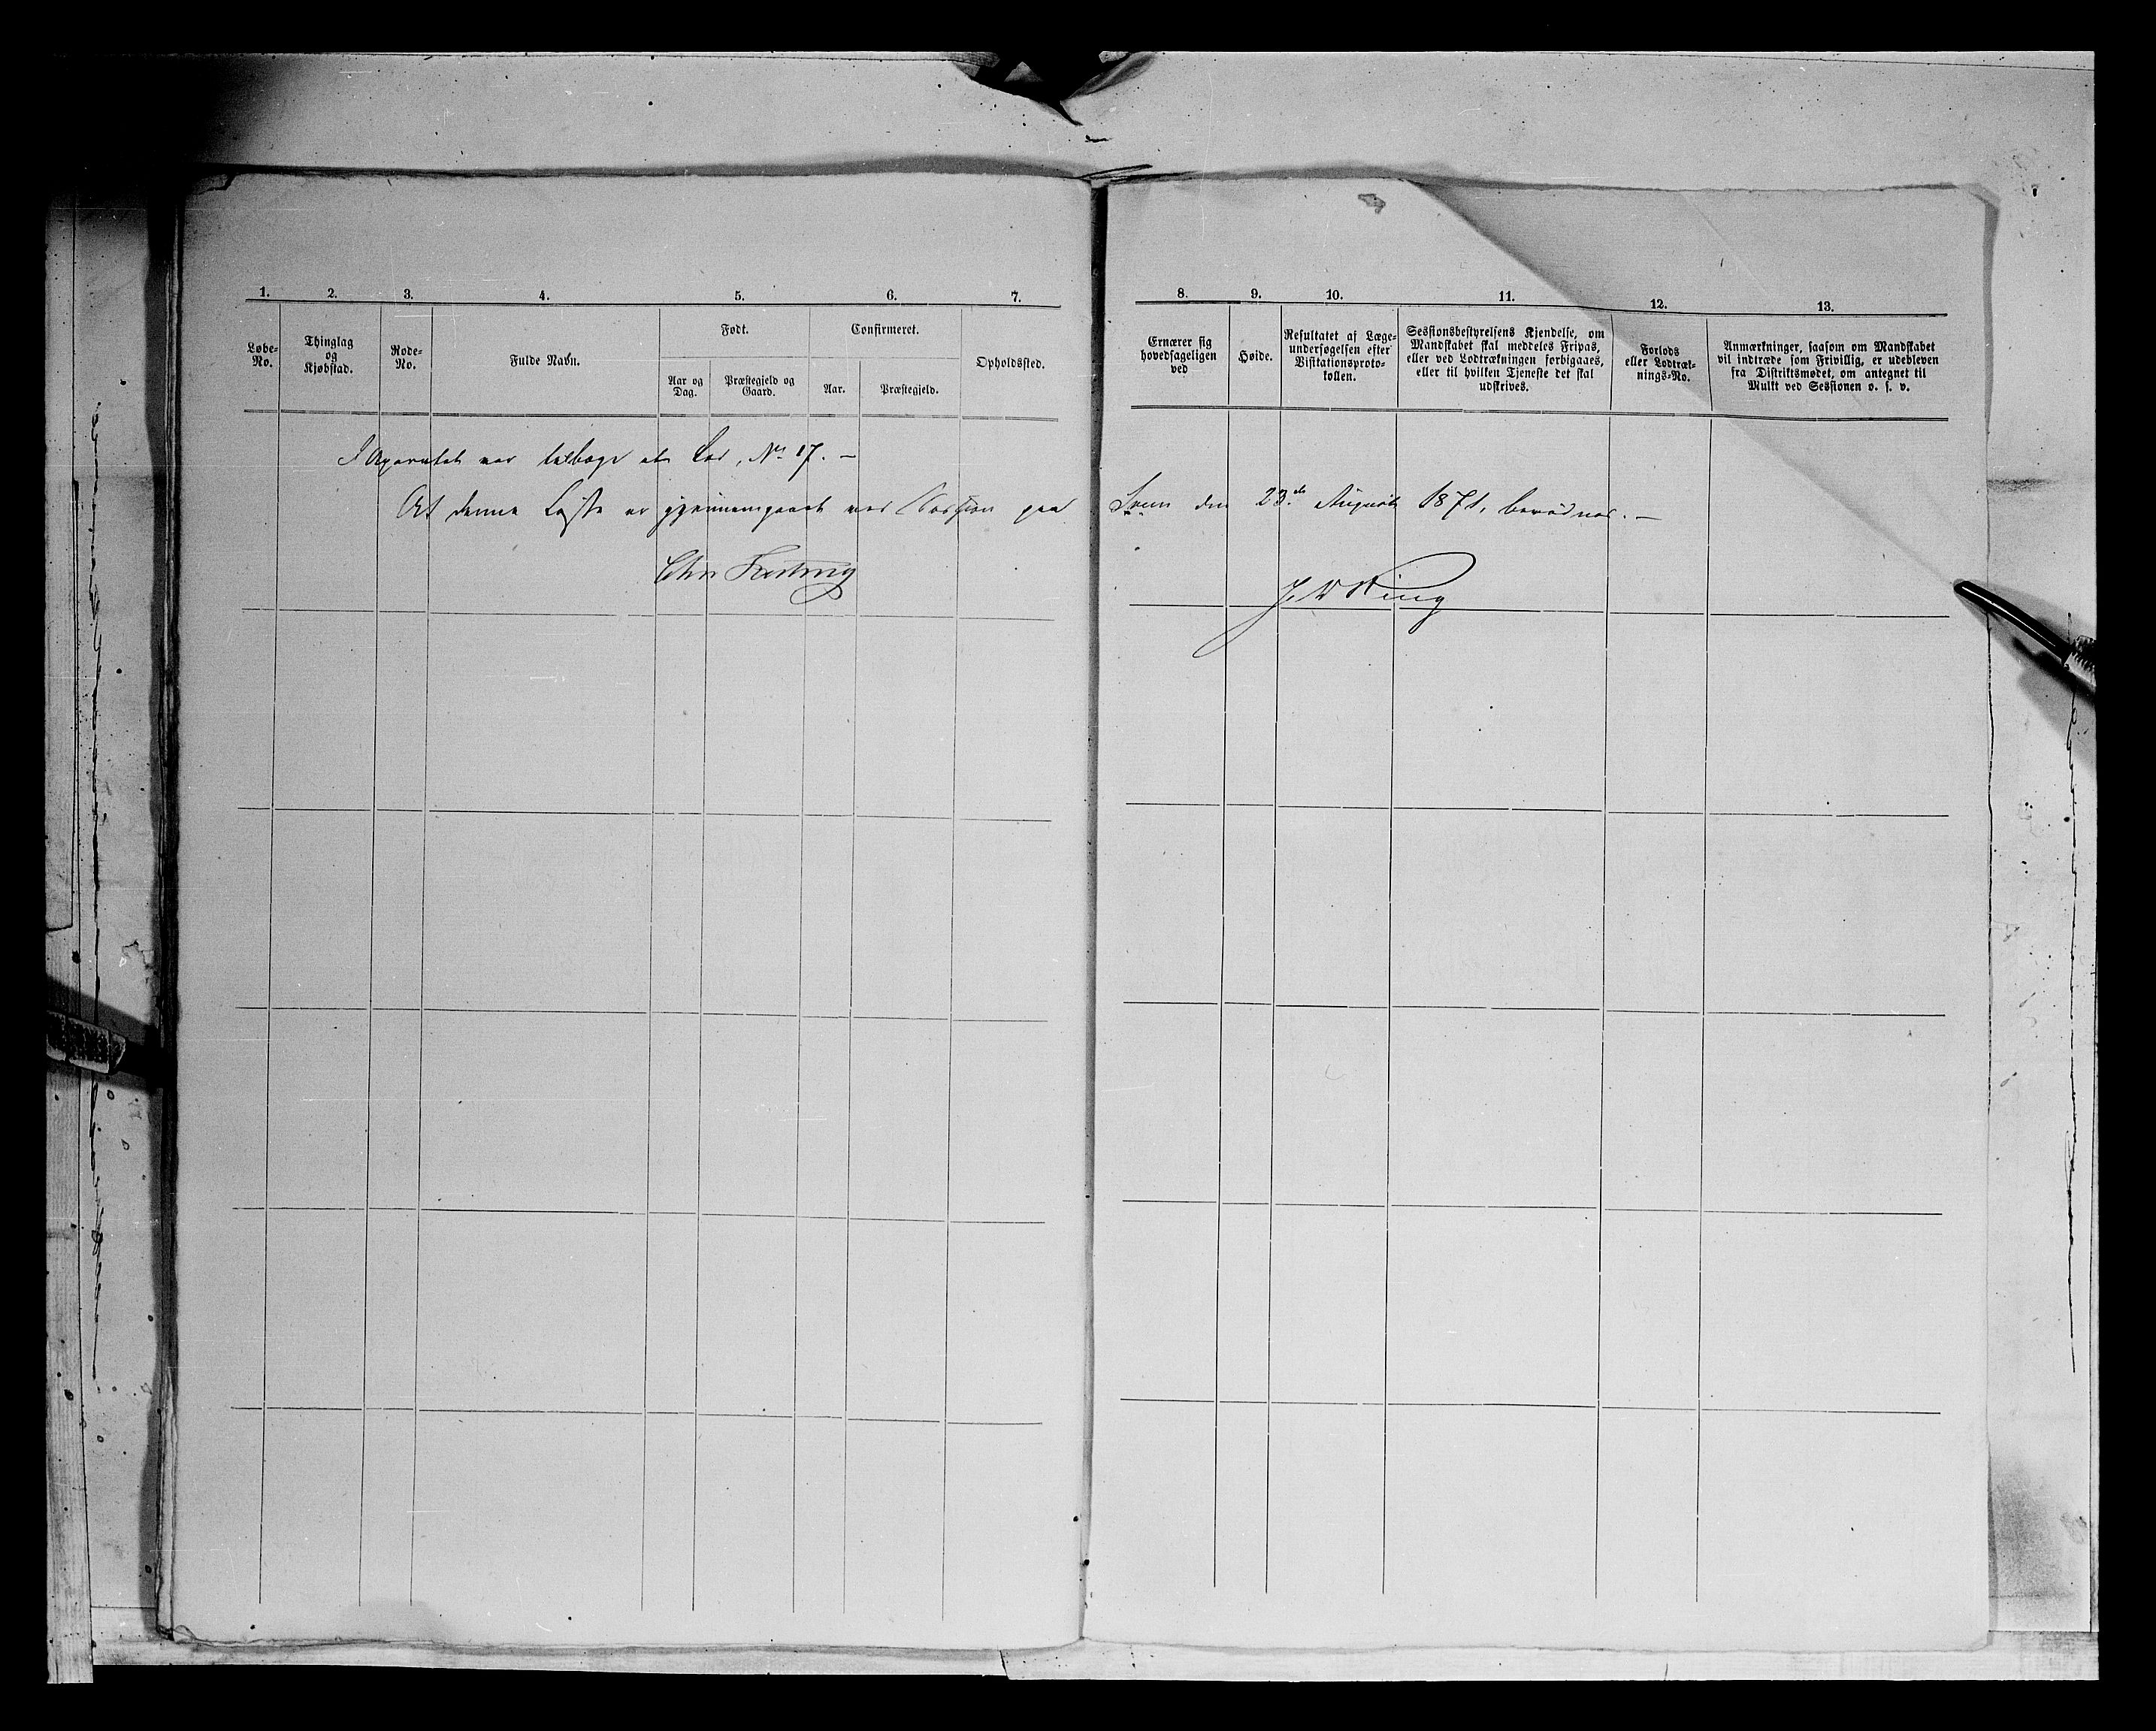 1. 2. 3. 4. 5. 6. 7.
Løbe-No. Thinglag og Kjøbstad. Rode-No. Fulde Navn. Født. Confirmeret. Opholdssted.
Aar og Dag. Præstegjeld og Gaard. Aar. Præstegjeld.
8. 9. 10. 11. 12. 13.
Ernærer sig hovedsageligen ved
Høide.
Resultatet af Læge-
undersøgelsen efter
Visitationsproto-
kollen.
Sessionsbestyrelsens Kjendelse, om
Mandskabet skal meddeles Fripas,
eller ved Lodtrækningen forbigaaes,
eller til hvilken Tjeneste det skal
udskrives.
Forlods
eller Lodtræk-
nings-No.
Anmærkninger, saasom om Mandskabet
vil indtræde som Frivillig, er udebleven
fra Distriktsmødet, om antegnet til
Mulkt ved Sessionen o. s. v.
No 17. –
At denne Liste er gjennemgaaet ved Session paa den 23de August 1871, bevidnes. –
J. W Ring